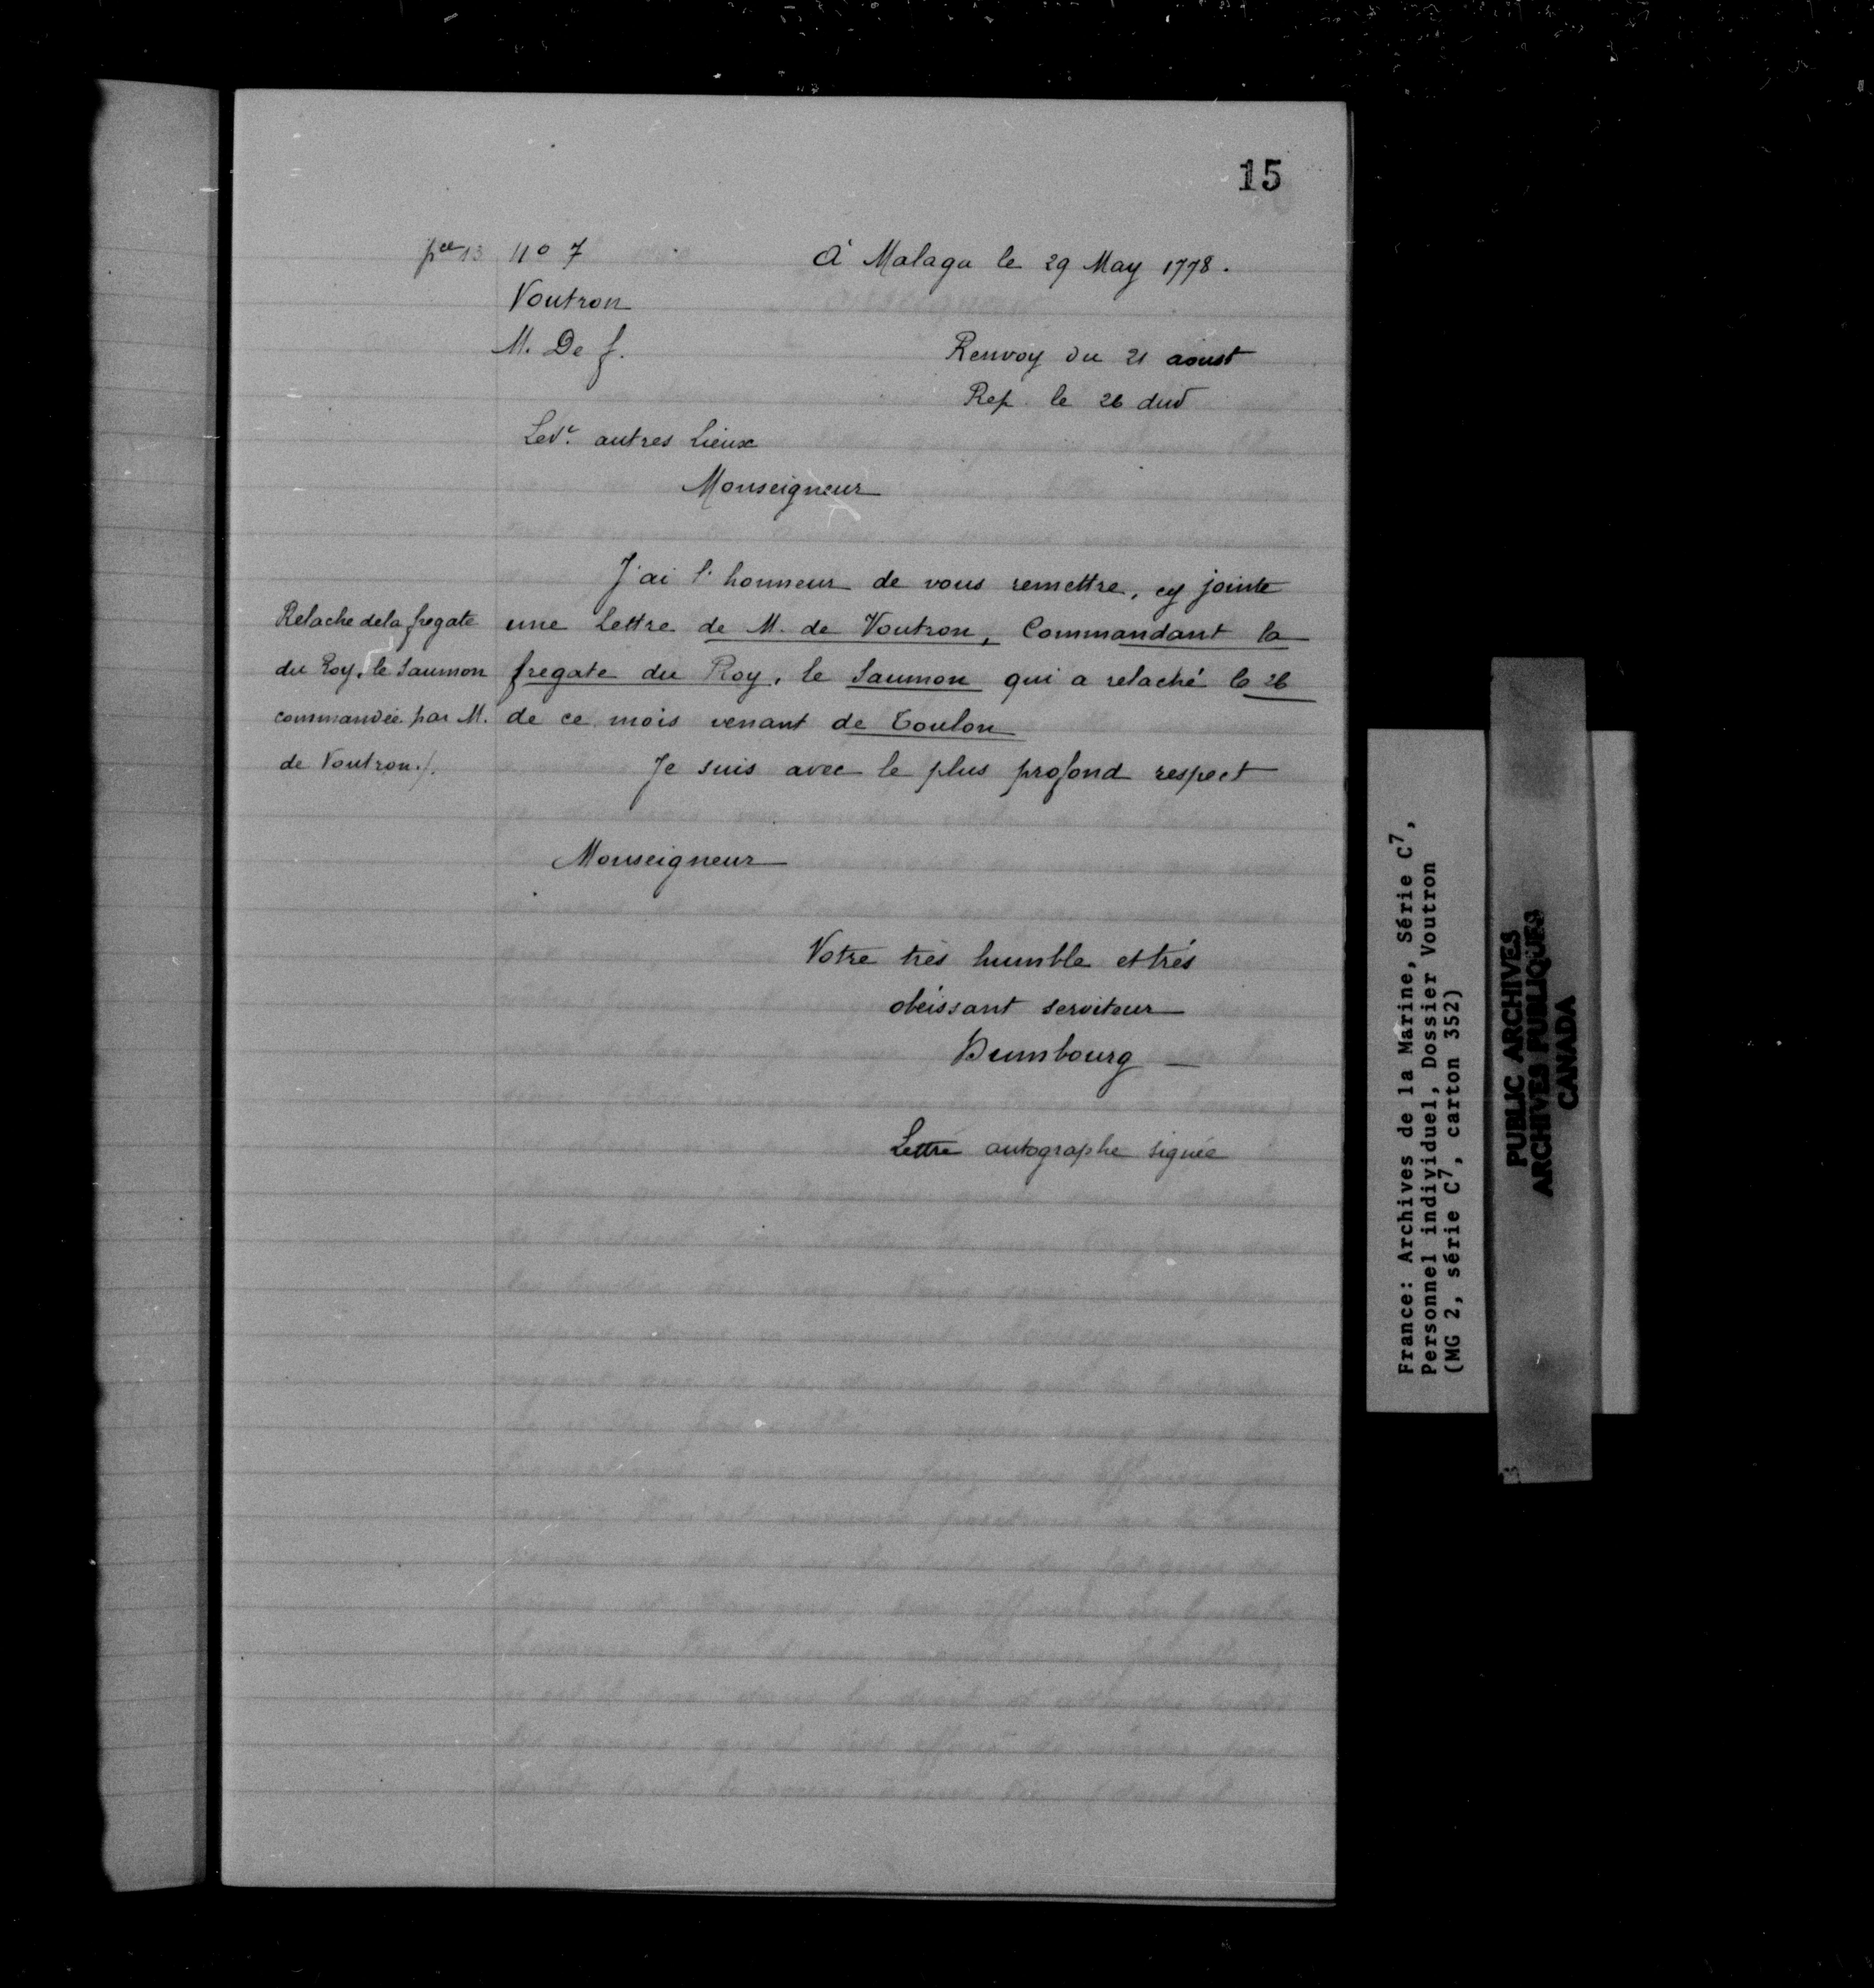 15
pce 13 No 7
à Malaga le 29 May 1778.
Voutron
M. De f.
Renvoy du 21 aoust
Rep le 26 dud
Led. autres lieux
Monseigneur
J'ai l'honneur de vous remettre, cy jointe
une Lettre de M. de Voutron, Commandant la
fregate du Roy, le Saumon qui a relaché le 26
de ce mois venant de Toulon
Relache dela fregate
du Roy, le Saumon
commandée par M.
de Voutron ./.
Je suis avec le plus profond respect
Monseigneur
Votre très humble et trés
obéissant serviteur
Humbourg
Lettre autographe signée
France: Archives de la Marine, Série C7,
Personnel individuel, Dossier Voutron
(MG 2, série C7, carton 352)
PUBLIC ARCHIVES
ARCHIVES PUBLIQUES
CANADA